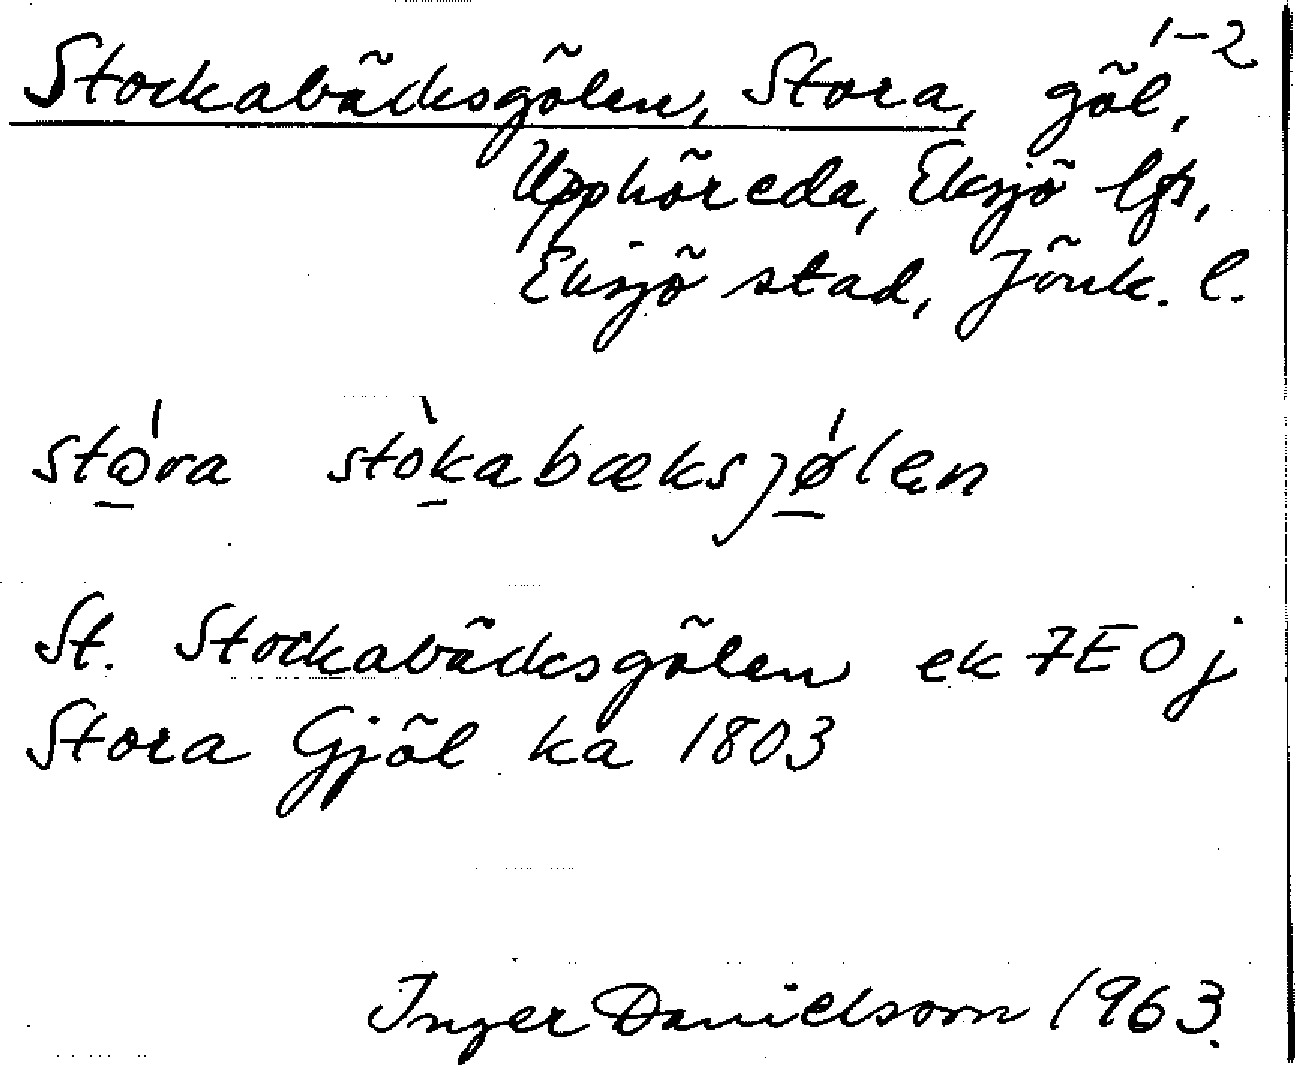 Stockabäcksgölen, Stora, göl, 1-2
Upphöreda, Eksjö lfs,
Eksjö stad, Jönk. l.
stóra stòkabæksjǿlen
St. Stockabäcksgölen ek 7E0j
Stora Gjöl ka 1803
Inger Danielsson 1963.